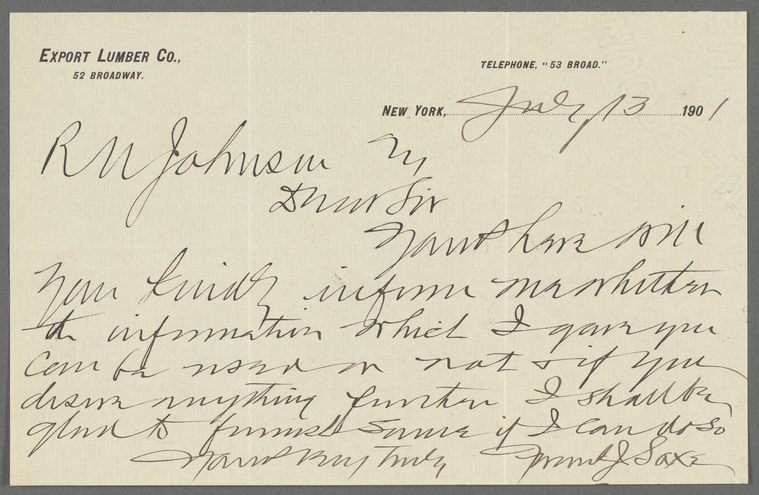 EXPORT LUMBER CO.,
52 BROADWAY.
TELEPHONE, "53 BROAD."
NEW YORK, July 13 1901
R U Johnson
Dear Sir
will
you kindly inform me whether
the information which I gave you
can be used or not & if you
desire anything further I shall be
glad to furnish same if I can do so
Yours Very truly Frank J Saxe